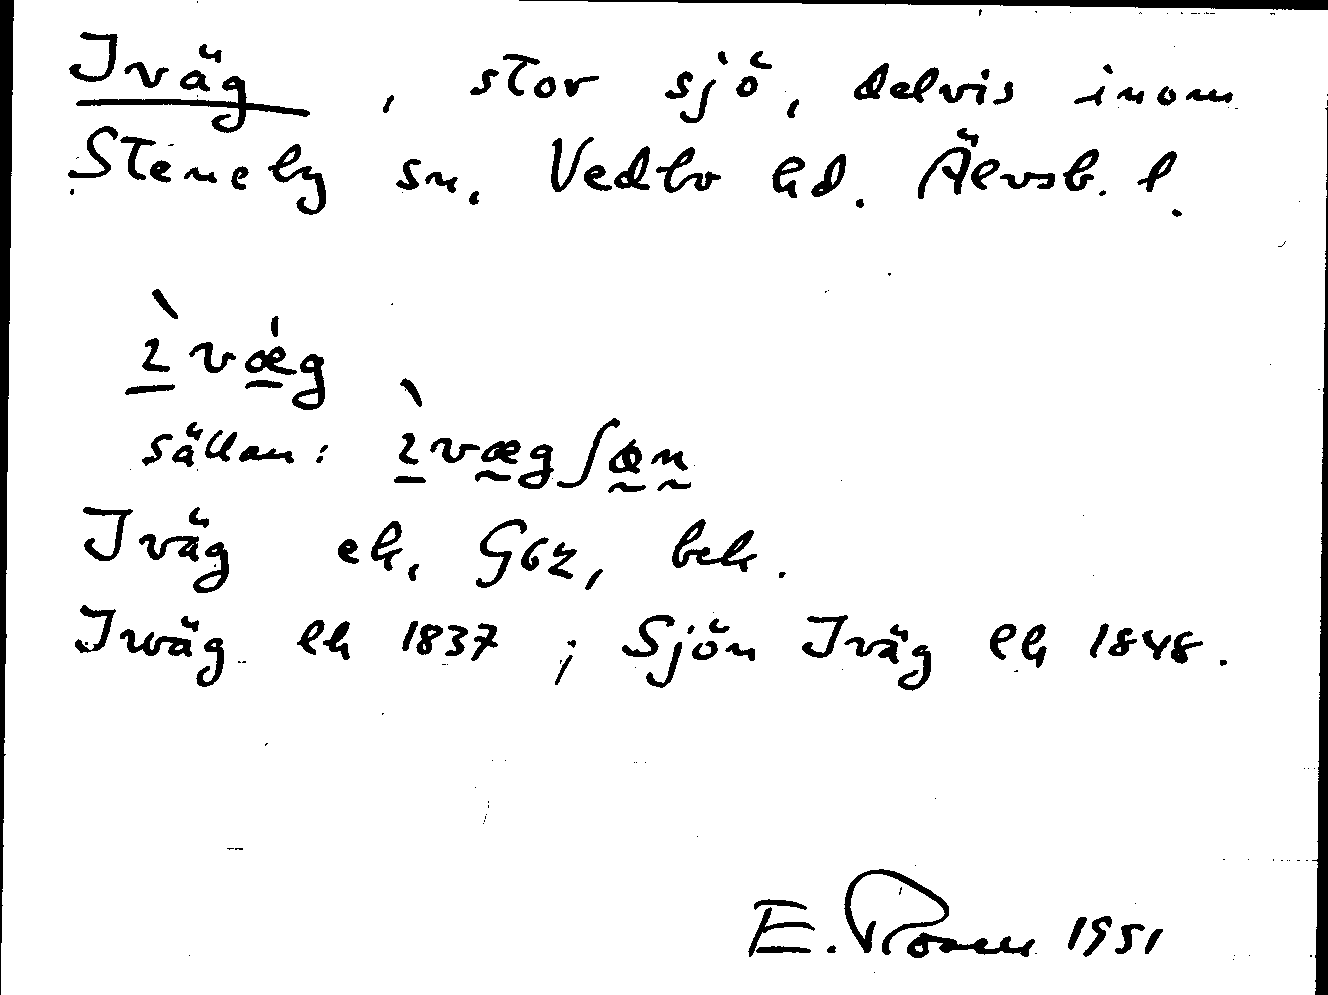 Iväg, stor sjö, delvis inom
Steneby sn. Vedbo hd. Älvsb. l.
ı̀væ̍g
sällan: ı̀vægʃøn
Iväg ek, G62, bek.
Iwäg lk 1837; Sjön Iväg lk 1848.
E. 1951